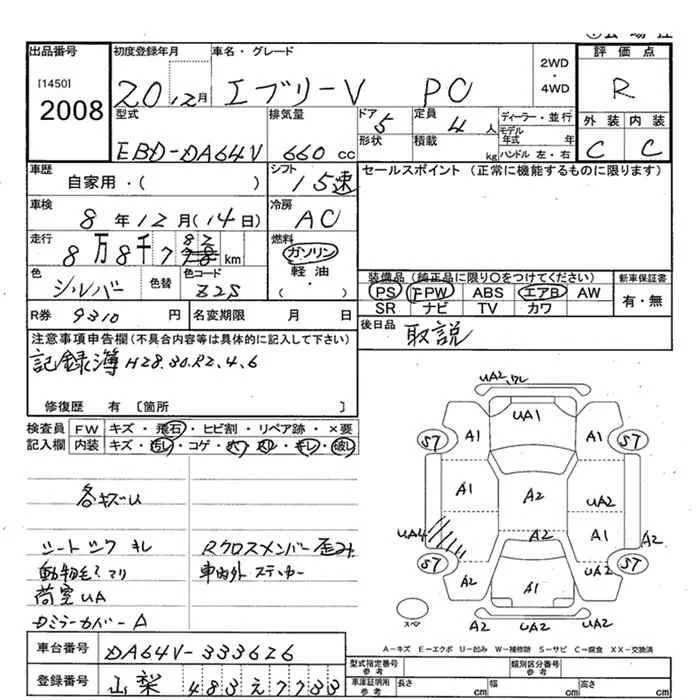 出品番号 初度登録年月 車名・グレード 2WD・4WD 評価点
[1450]
2008 20 12月 エブリーV PC R
型式 排気量 ドア 5 定員 4人 ディーラー・並行 外装 内装
EBD-DA64V 660cc 形状 積載 kg モデル年式 年 ハンドル 左・右 C C
車歴 自家用・( ) シフト I5速 セールスポイント(正常に機能するものに限ります)
車検 8年12月(14日) 冷房 AC
走行 8万8千7 82 km 燃料 ガソリン
軽油・( )
色 シルバー 色替 色コード Z2S
装備品(純正品に限り○をつけてください) 新車保証書
PS PW ABS エアB AW 有・無
SR ナビ TV カワ
R券 9310円 名変期限 月 日
後日品 取説
注意事項申告欄(不具合内容等は具体的に記入して下さい)
記録簿 H28.30.R2.4.6
修復歴 有 [箇所 ]
検査員記入欄 FW キズ・飛石・ヒビ割・リペア跡・×要
内装 キズ・汚し・コゲ・穴・スレ・キレ・破し
各キズU
シートシワ キレ Rクロスメンバー歪み
車内外ステッカー
荷室UA
ミラーカバーA
UA2
UA1
S7 A1 A1 S7
A1 A2 UA2
UA4 A2 A1 A2
S7 A2 A1 UA2 S7
スペア A2 UA2 UA2
A−キズ E−エクボ U−凹み W−補修跡 S−サビ C−腐食 XX−交換済
車台番号 DA64V-333626
登録番号 山梨 483え7733
型式指定番号 参考 類別区分番号 参考
車庫証明用 参考 長さ cm 幅 cm 高さ cm